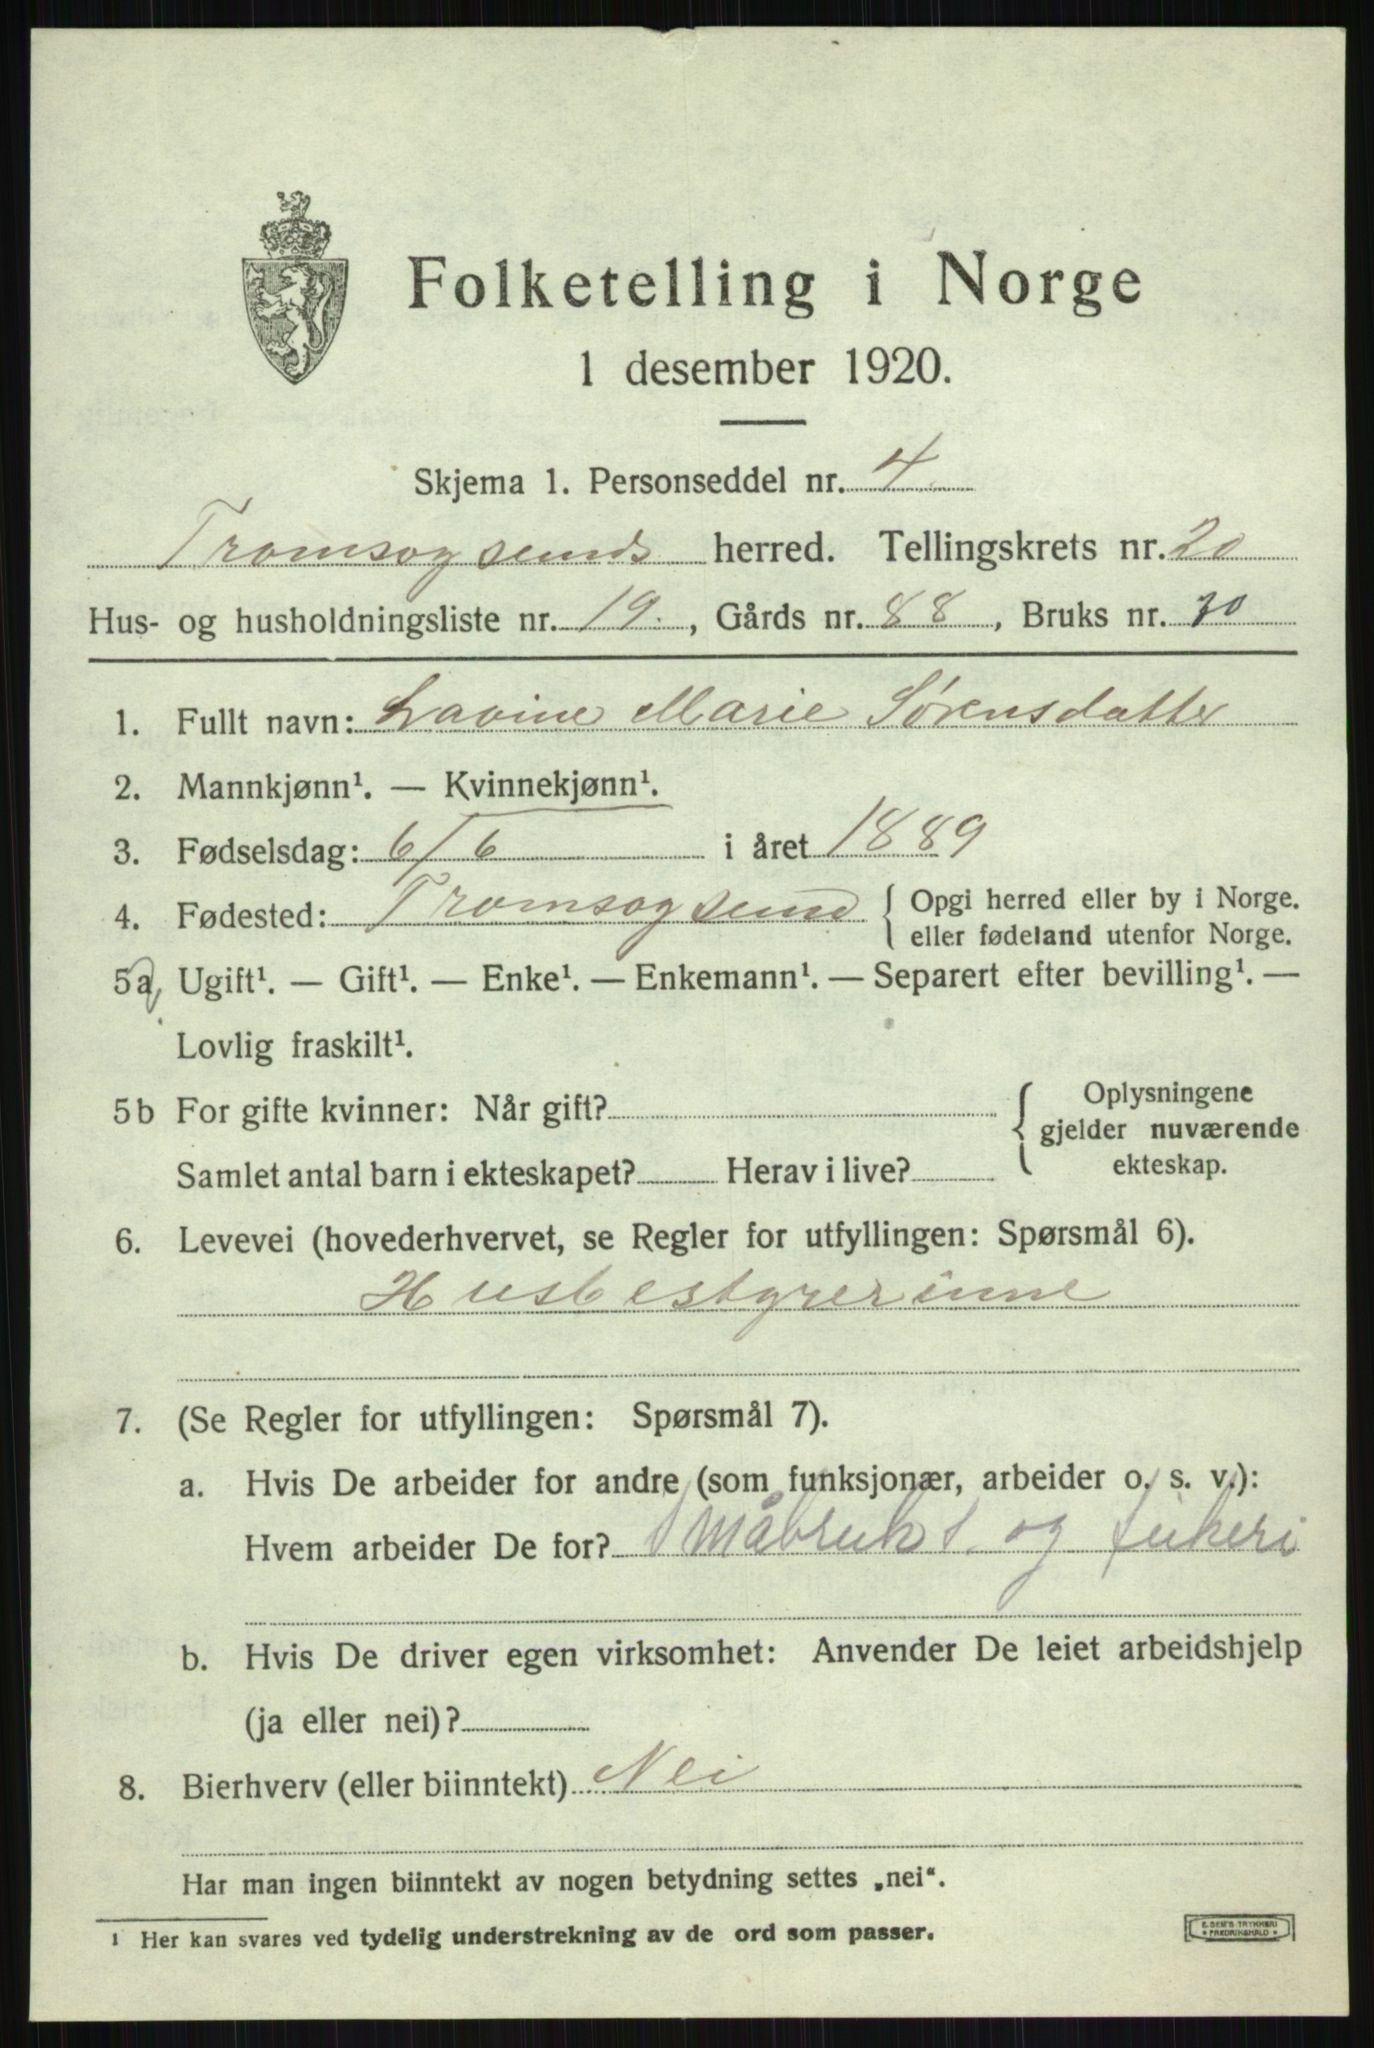 Folketelling i Norge
1 desember 1920.
Skjema 1. Personseddel nr. 4
Tromsøysunds herred. Tellingskrets nr. 20
Hus- og husholdningsliste nr. 19., Gårds nr. 88, Bruks nr. 30
1. Fullt navn: Lavine Marie Sørensdatter
2. Mannkjønn¹. — Kvinnekjønn¹.
3. Fødselsdag: 6/6 i året 1889
4. Fødested: Tromsøysund { Opgi herred eller by i Norge.
eller fødeland utenfor Norge.
5a Ugift¹. — Gift¹. — Enke¹. — Enkemann¹. — Separert efter bevilling¹. —
Lovlig fraskilt¹.
5b For gifte kvinner: Når gift? { Oplysningene
gjelder nuværende
Samlet antal barn i ekteskapet? Herav i live? ekteskap.
6. Levevei (hovederhvervet, se Regler for utfyllingen: Spørsmål 6).
Husbestyrerinne
7. (Se Regler for utfyllingen: Spørsmål 7).
a. Hvis De arbeider for andre (som funksjonær, arbeider o. s. v.):
Hvem arbeider De for? Småbruk og fiskeri
b. Hvis De driver egen virksomhet: Anvender De leiet arbeidshjelp
(ja eller nei)?
8. Bierhverv (eller biinntekt) Nei
Har man ingen biinntekt av nogen betydning settes „nei“.
¹ Her kan svares ved tydelig understrekning av de ord som passer.
E. SEM'S TRYKKERI
* FREDRIKSHALD *